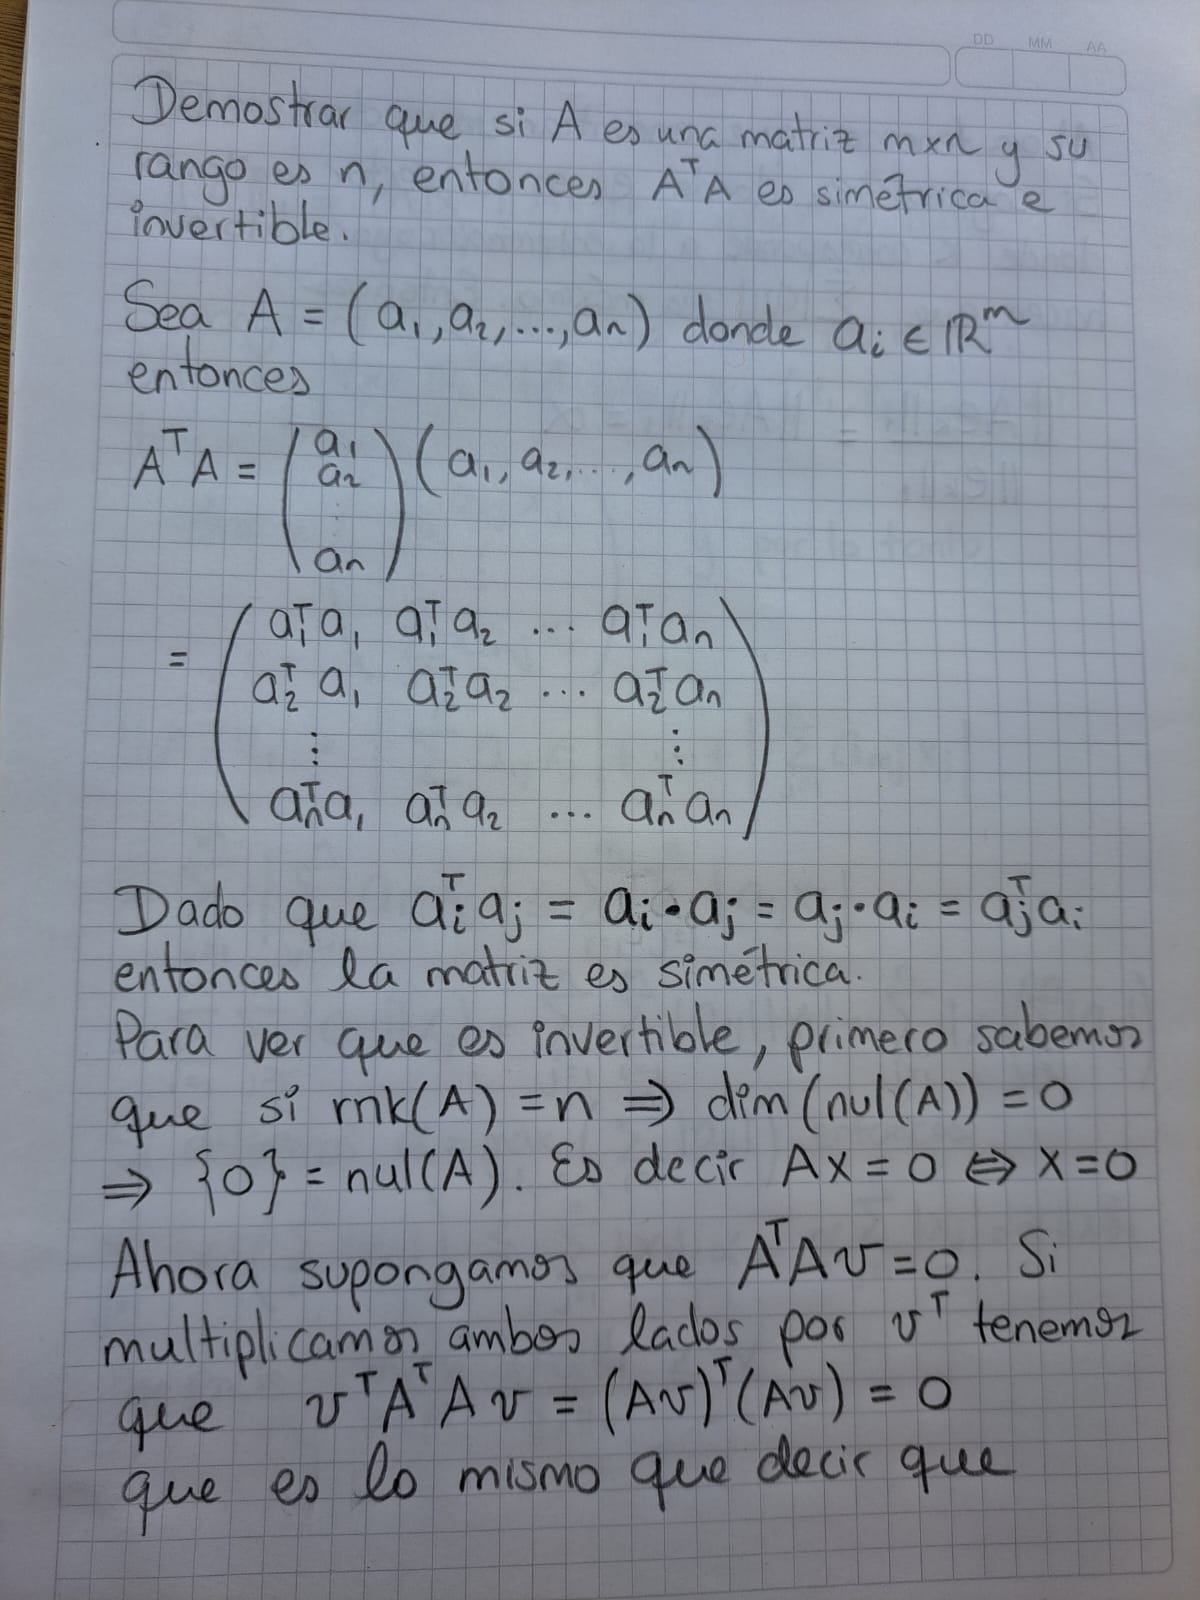 DD MM AA
Demostrar que si A es una matriz m×n y su
rango es n, entonces AᵀA es simétrica e
invertible.
Sea A = (a₁, a₂, ..., aₙ) donde aᵢ ∈ ℝᵐ
entonces
AᵀA = (a₁ a₂ ⋮ aₙ) (a₁, a₂, ..., aₙ)
= (a₁ᵀa₁ a₁ᵀa₂ ... a₁ᵀaₙ
a₂ᵀa₁ a₂ᵀa₂ ... a₂ᵀaₙ
⋮ ⋮
aₙᵀa₁ aₙᵀa₂ ... aₙᵀaₙ)
Dado que aᵢᵀaⱼ = aᵢ·aⱼ = aⱼ·aᵢ = aⱼᵀaᵢ
entonces la matriz es simétrica.
Para ver que es invertible, primero sabemos
que si rnk(A) = n ⇒ dim(nul(A)) = 0
⇒ {0} = nul(A). Es decir Ax = 0 ⇔ x = 0
Ahora supongamos que AᵀAv = 0. Si
multiplicamos ambos lados por vᵀ tenemos
que vᵀAᵀAv = (Av)ᵀ(Av) = 0
que es lo mismo que decir que